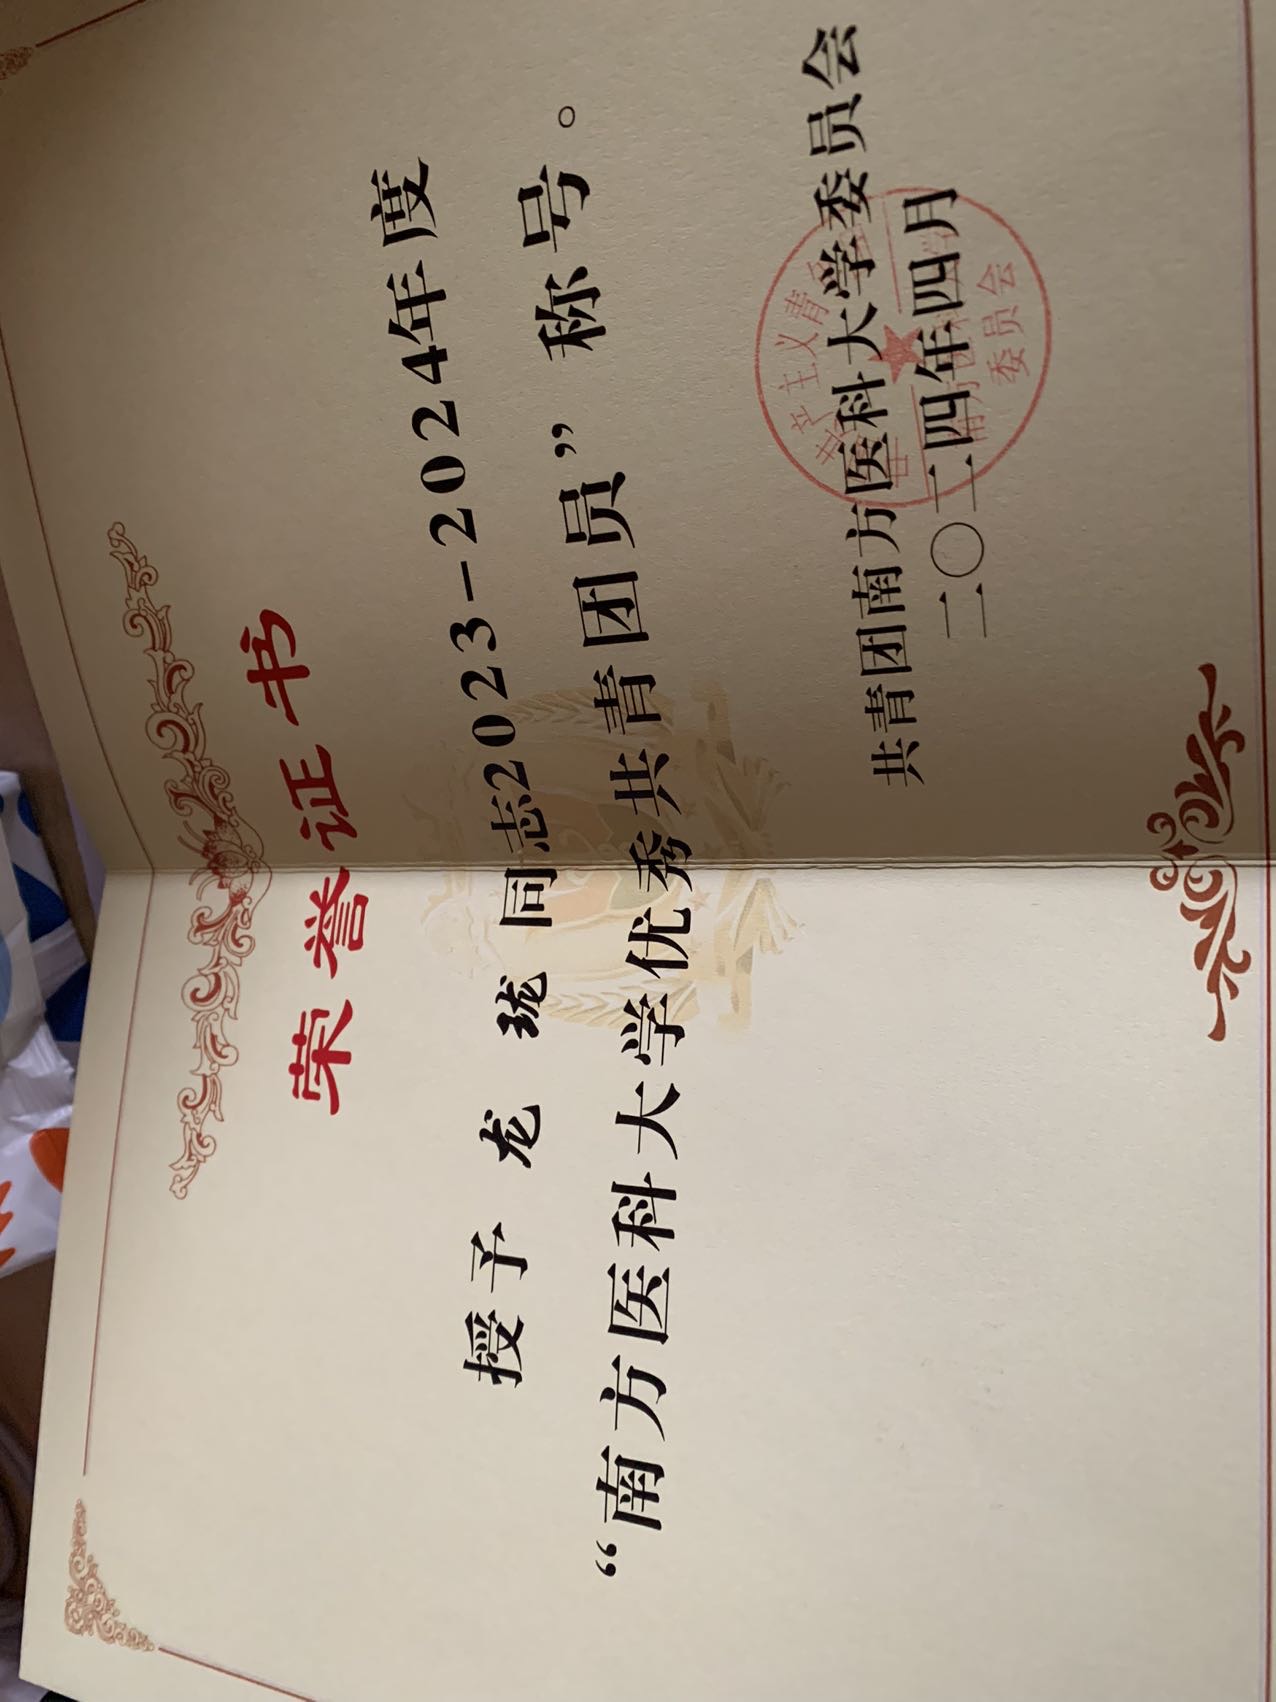 荣誉证书
授予 龙 珑 同志2023-2024年度
“南方医科大学优秀共青团员”称号。
共青团南方医科大学委员会
二〇二四年四月
委员会